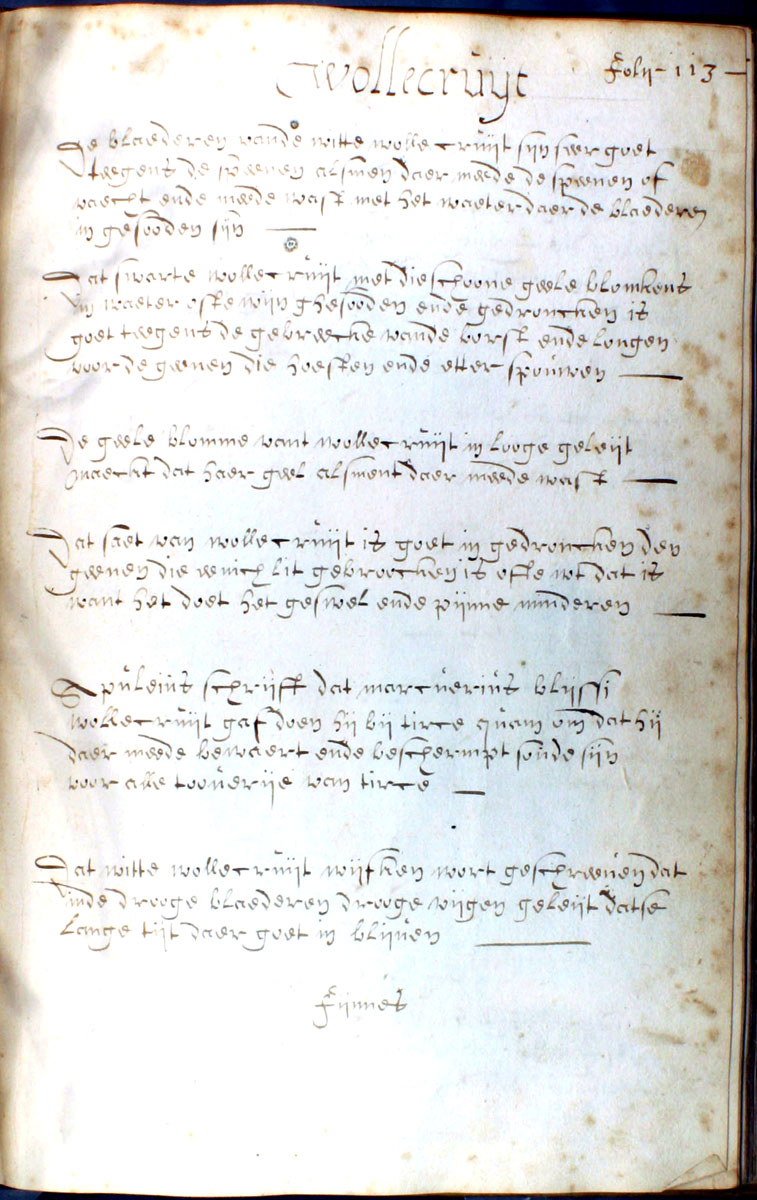 Wollecruijt
Folii 113
De blaederen vande witte wollecruijt sijn seer goet
teegens de speenen alsmen daer meede de speenen of
vaecht ende meede wast met het waeter daer de blaederen
in gesooden sijn
Dat swarte wollecruijt met die schoone geele blomkens
in waeter ofte wijn ghesooden ende gedroncken is
goet teegens de gebreecke vande borst ende longen
voor de geenen die hoesten ende etter spouwen
De geele blomme vant wollecruijt in looge geleijt
maeckt dat haer geel alsment daer meede wast
Dat saet van wollecruijt is goet in gedroncken den
geenen die eenich lit gebroocken is ofte wt dat is
want het doet het geswel ende pijnne minderen
Apuleius schrijft dat marcuerius vlijssi
wollecruijt gaf doen hij bij tirce quam om dat hij
daer meede bewaert ende beschermpt soude sijn
voor alle tooverije van tirce
Dat witte wollecruijt wijfken wort geschreeven dat
inde drooge blaederen drooge vijgen geleijt datse
lange tijt daer goet in blijven
Fiinnes